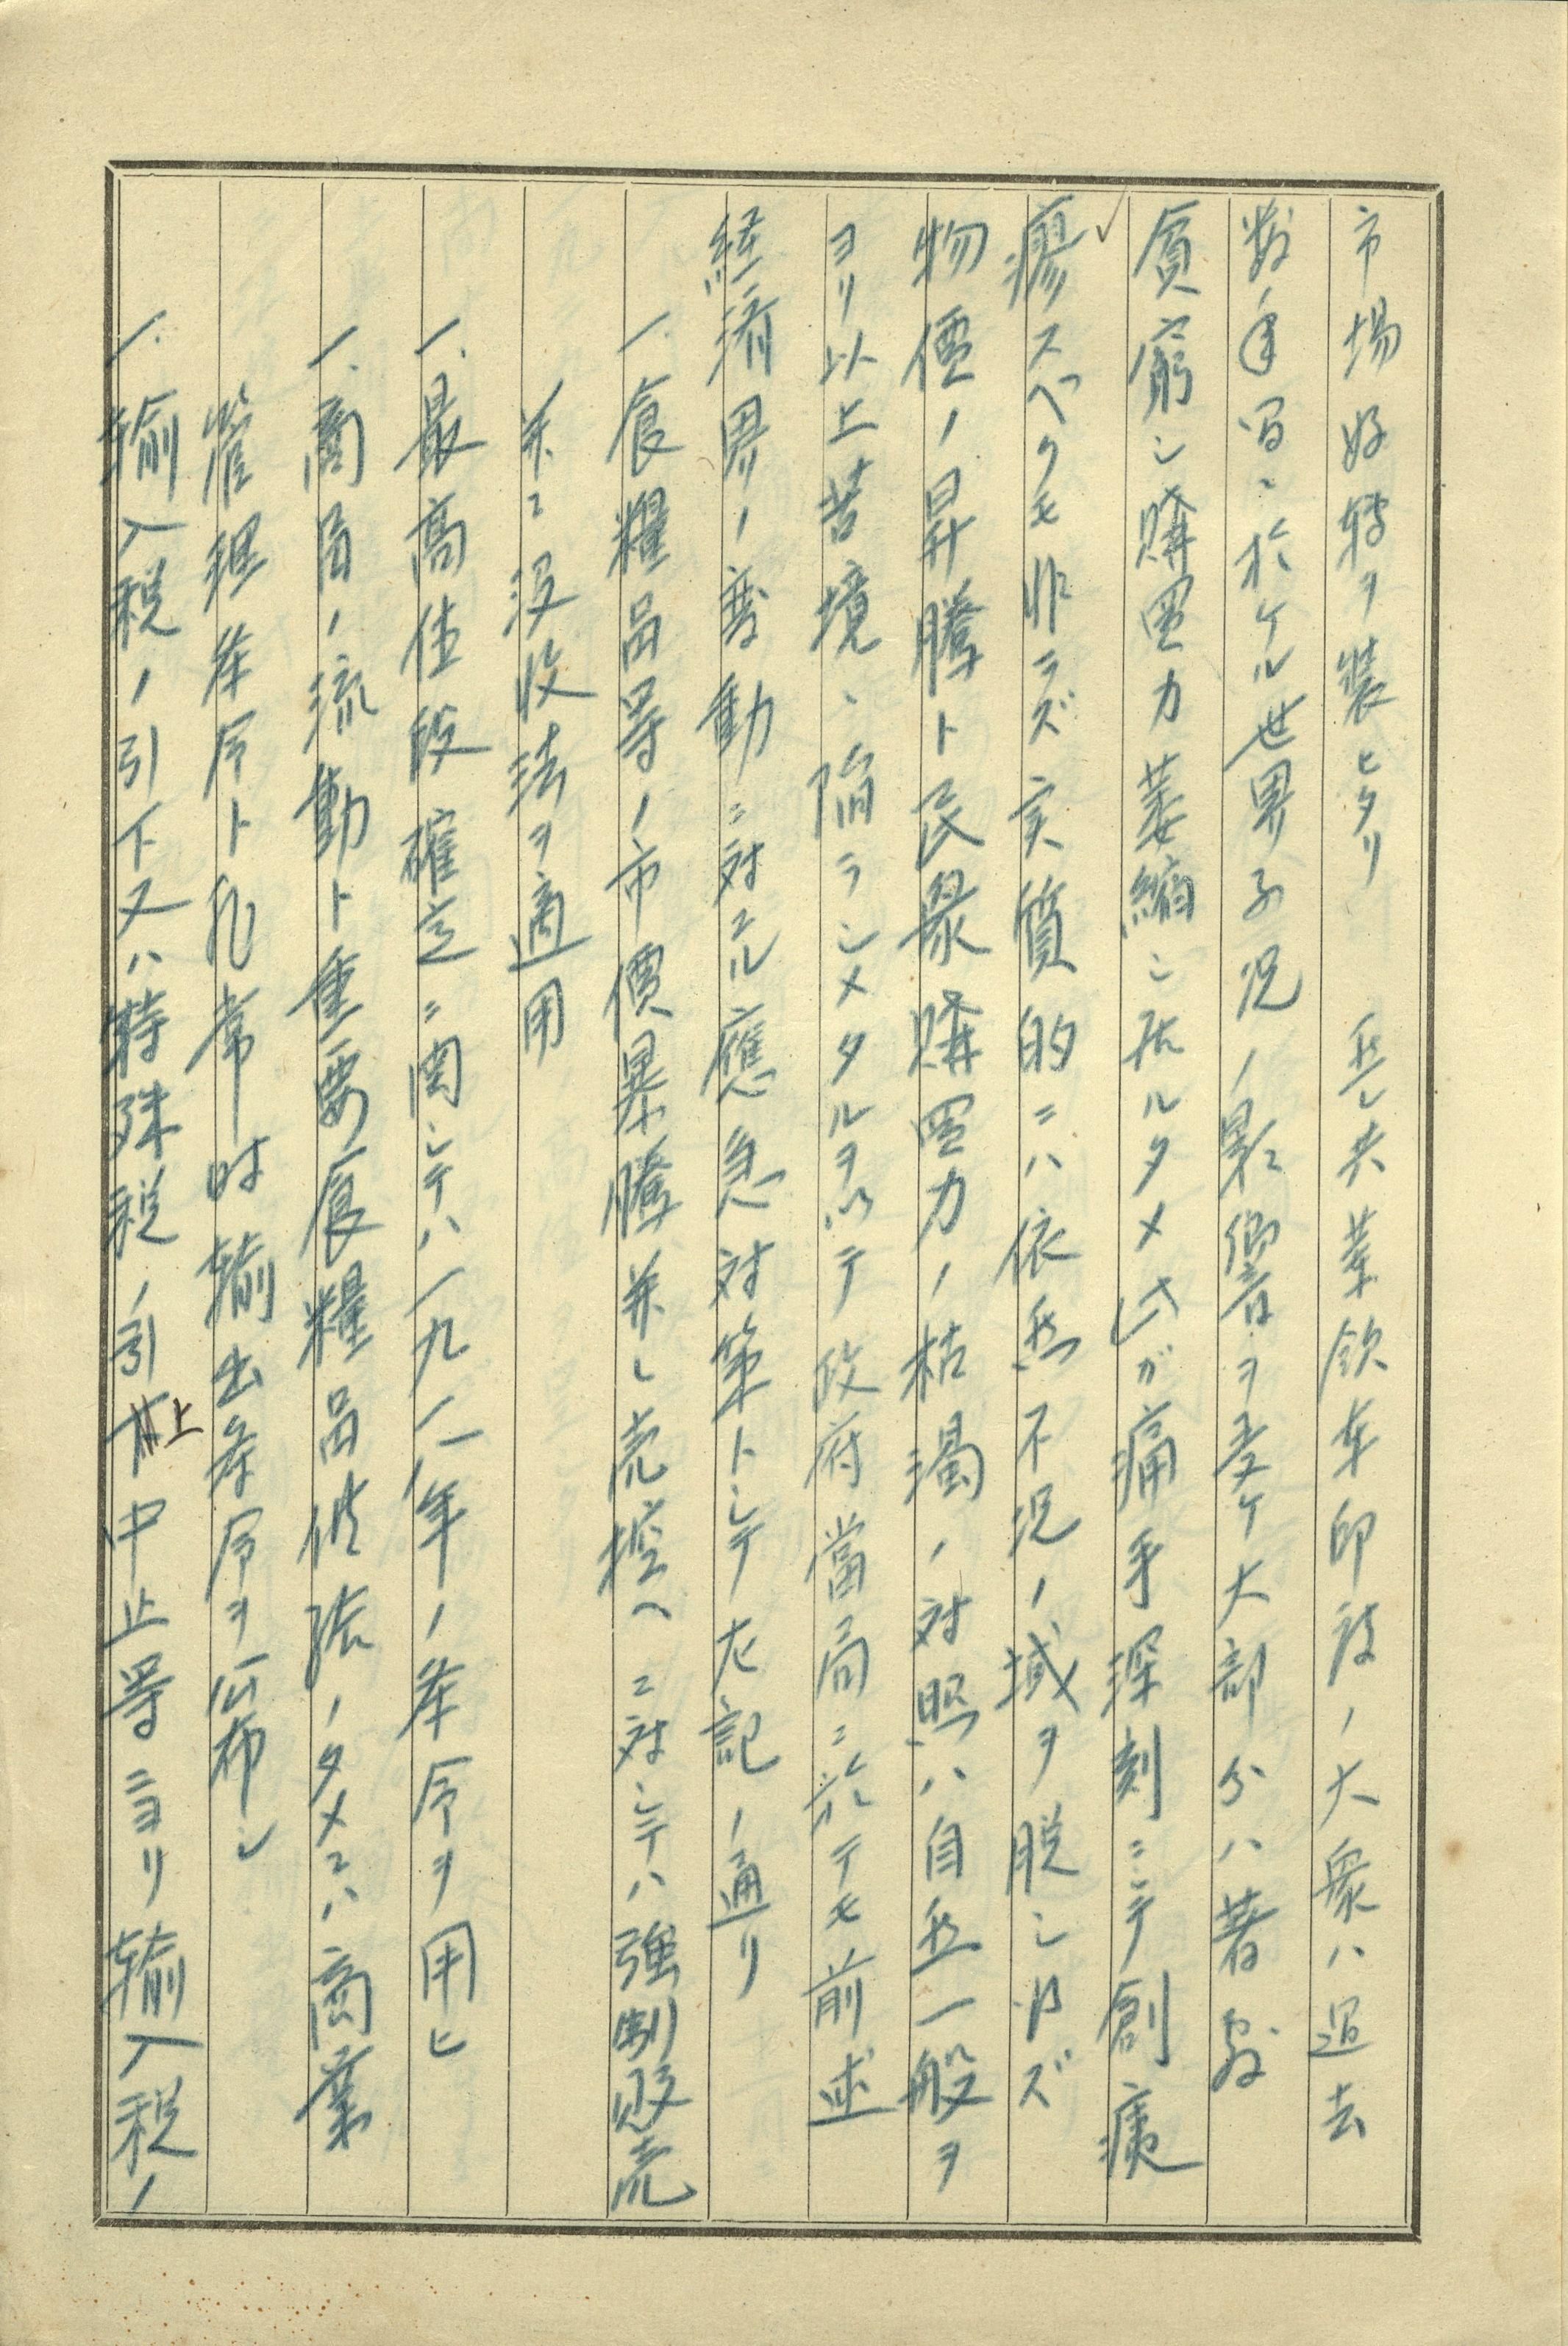 市場好轉ヲ装ヒタリ 然レ共業欽本印度ノ大衆ハ過去
数ノ年間ニ於ケル世界不況ノ影響ヲ受ケ大部分ハ著敷
貧窮シ購買力萎縮シ居ルタメ此ガ痛手深刻ニシテ創痍
療スベクモ非ラズ実質的ニハ依然不況ノ域ヲ脱シ得ズ
物價ノ昇騰ト民衆購買力ノ枯渇ノ対照ハ自然一般ヲ
ヨリ以上苦境ニ陥ラシメタルヲ以テ政府當局ニ於テモ前述
経済界ノ変動ニ対スル應急対策トシテ左記ノ通リ
一.食糧品等ノ市價暴騰並ニ売控ヘニ対シテハ強制販売
並ニ没收法ヲ適用
一.最高値段確定ニ関シテハ一九一一年ノ条令ヲ用ヒ
一.商品ノ流動ト重要食糧品供給ノタメニハ商業
管理条令ト非常時輸出条令ヲ公布シ
一.輸入税ノ引下又ハ特殊税ノ引上中止等ニヨリ輸入税ノ